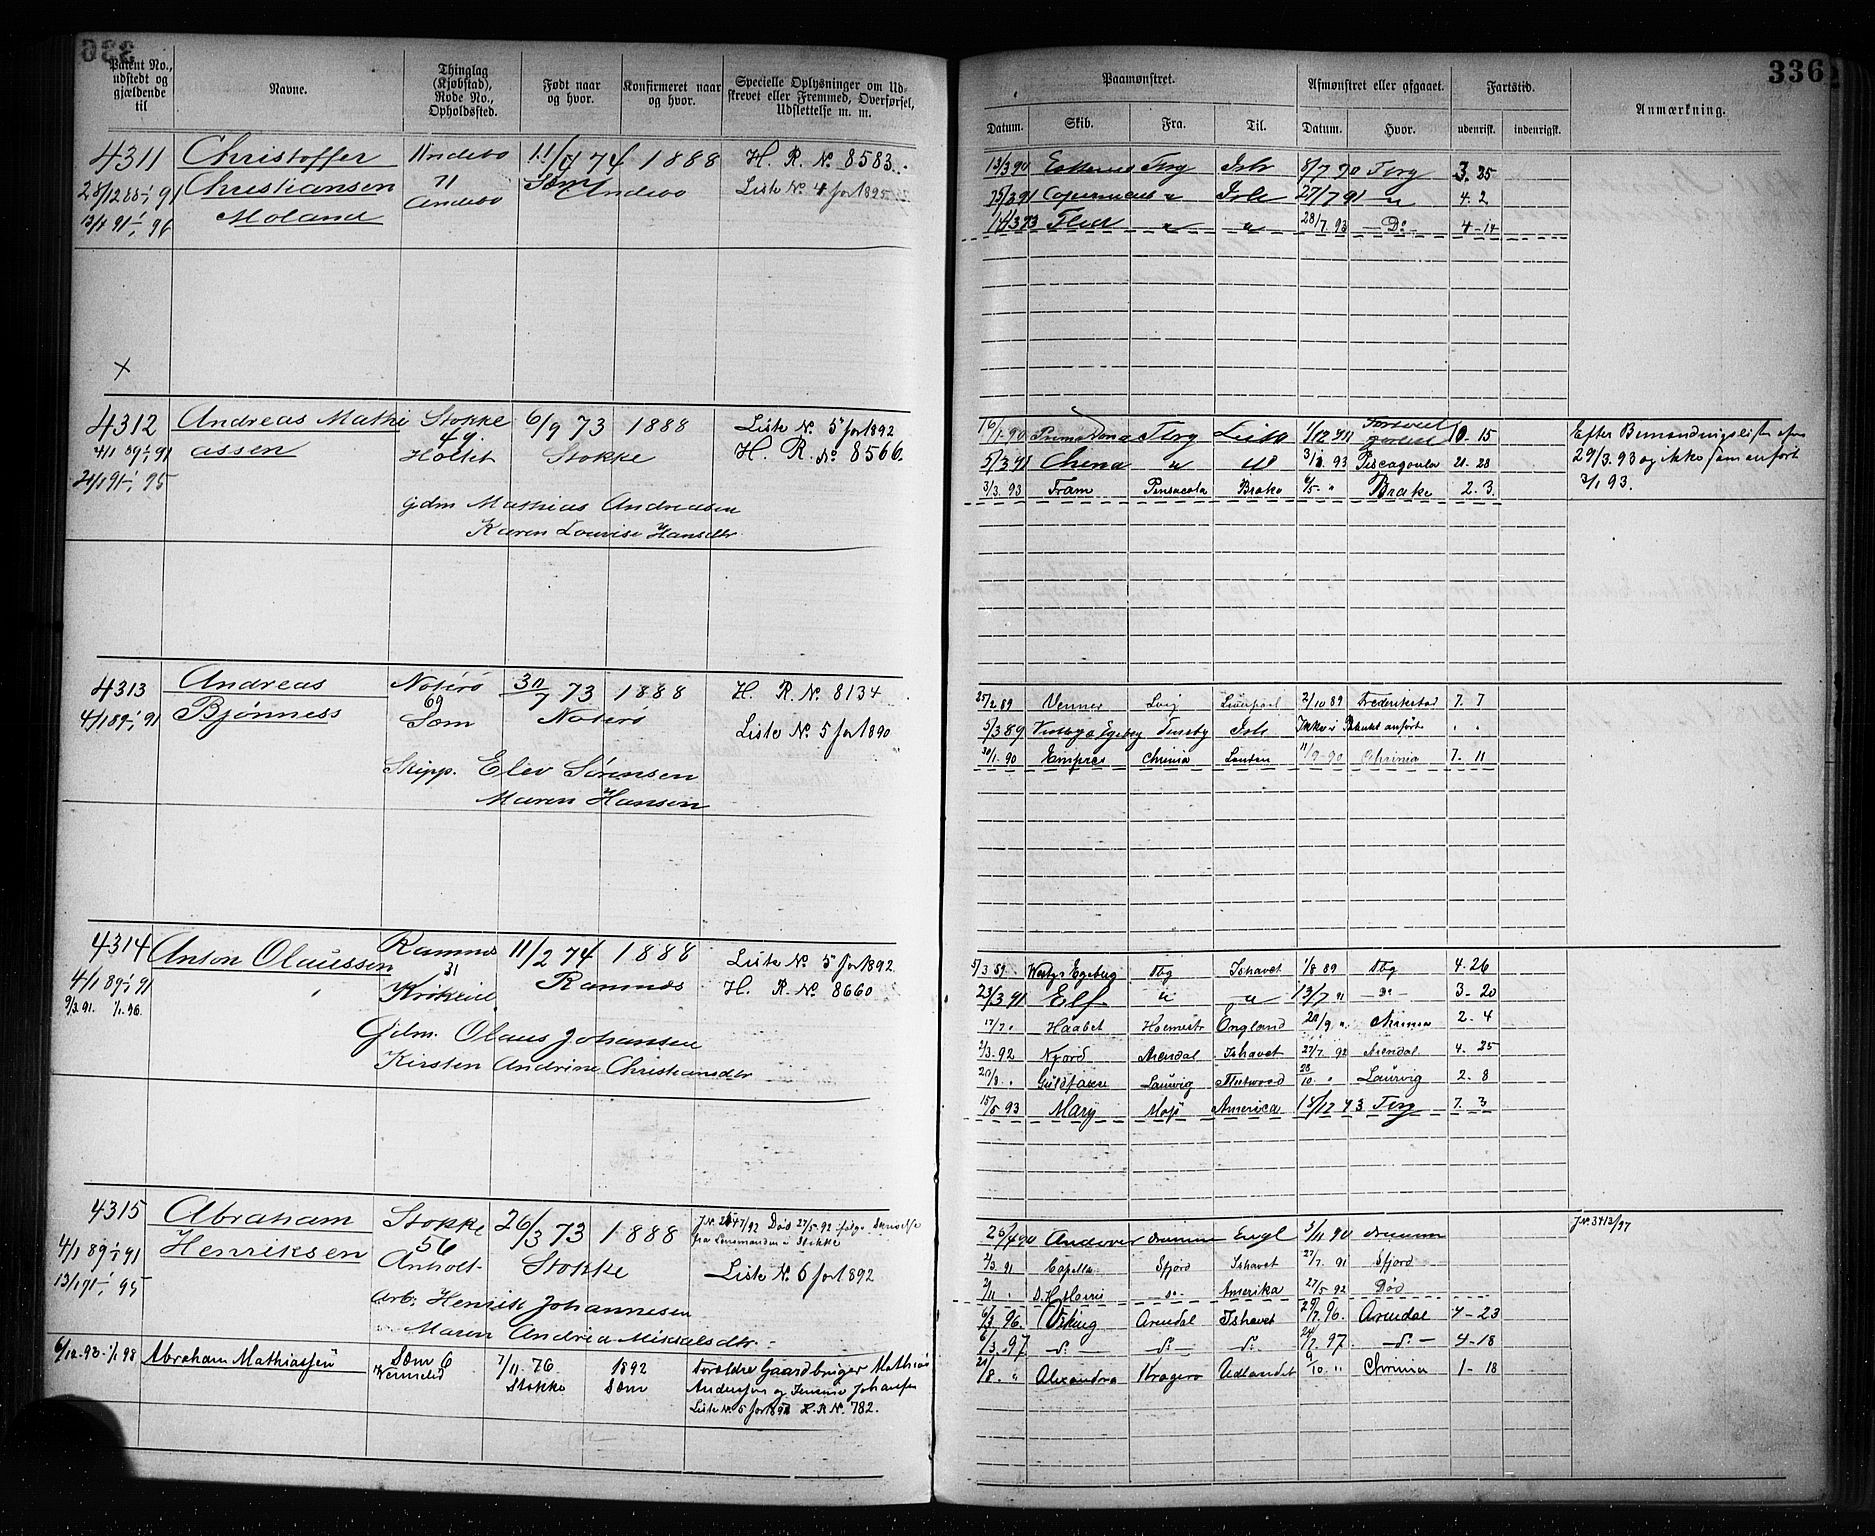 336
Patent No., udstedt og gjældende til
Navne.
Thinglag (Kjøbstad), Rode No., Opholdssted.
Født naar og hvor.
Konfirmeret naar og hvor.
Specielle Oplysninger om Udskrevet eller Fremmed, Overførsel, Udslettelse m. m.
Paamønstret.
Afmønstret eller afgaaet.
Fartstid.
Anmærkning.
Datum. Skib. Fra. Til. Datum. Hvor. udenrigst. indenrigst.
4311 Christoffer Andebo 11/7 74 1888 H. R. No 8583.
28/12 88 - 1/1 91 Christiansen 71 Sæm Andebo Liste No 4 for 1895
1/1 96 Moland Andebo
13/3 90 Tbrg Ishv 8/7 90 Tbrg 3. 25
25/3 91 Copernicus " Ishv 27/7 91 " 4. 2
14/3 93 Flora " " 28/7 93 - Do - 4 - 14
X
4312 Andreas Mathi Stokke 6/9 73 1888 Liste No 5 for 1892
4/1 89 - 1/1 91 assen 49. Holtet Stokke H. R. No 8566.
21/1 91 - 1/1 95
gdm Mathias Andreasen
Karen Lovise Hansdtr.
Prima Dona Tbrg Leith Forsvet 10. 15
5/3 91 China " 3/1 93 Pascagoula 21. 28
3/3. 93 Fram Pensacola Brake 6/5 - " Brake 2. 3.
Efter Bemandingsliste
29/3. 93 og ikke som anført
3/1 93.
4313 Andreas Nøterø 30/7 73 1888 H. R. No 8134
4/1 89 - 1/1 91 Bjønness 69 Sæm Nøterø Liste No 5 for 1890
Skipp. Elev Sørensen
Maren Hansen
25/2 89 Venner Lvig Liverpool 2/10 89 Frederikstad 7. 7
5/3 89 Vestby Egeberg Tønsbg Ish Ikke i Patentet anført " "
30/1. 90 Empres Chrinia London 11/9 - 90 Chrinia 7. 11
4314 Anton Olaussen Ramnes 11/2 74 1888 Liste No 5 for 1892
4/1 89 - 1/1 91 31 Ramnes H. R. No 8660
9/3 91. 1/1. 96.
Gdm. Olaus Johansen
Kirsten Andrine Christiansdtr
5/3 89 Egeberg Tbg Ishavet 1/8 89 Tbg 4. 26
23/3 91 Elf " " 13/7 91 - Do - 3 - 20
17/7 " Haabet Holmestr England 20/9 " Chrinia 2. 4
2/3. 92 Njord Arendal Ishavet 27/7. 92 Arendal 4. 25
20/8. " Guldfaxe Laurvig Fleetwood 28/10. " Laurvig 2. 8
15/5 93 Mary Moss America 18/12 93 Tbrg 7. 3
4315 Abraham Stokke 26/3 73 1888 Død 27/5-92 ifølge Skrivelse
4/1 89 - 1/1 91 Henriksen 56 Anholt Stokke fra Lensmanden i Stokke
13/1 91 - 1/1 95 Liste No 6 for 1892
Arb. Henrik Johannesen
Maren Andrea Mikkelsdtr.
26/4 90 Andover Drammen Engl 5/11 90 Drammen
2/3. 91 Capella Sfjord Ishavet 27/7. 91 Sfjord
2/11 " - Do - Amerika 27/5 92 Død
J. No. 3412/97
6/3. 96. Viking Arendal Ishavet 29/7. 96. Arendal 4 - 23
6/3. 97 - Do - - Do - - Do - 24/7. 97. - Do - 4 - 18
6/12 - 93 - 1/1 98 Abraham Mathiassen Sæm 6 7/11 76 1892 Forældre Gaardbruger Mathias
Stokke Sæm Anderssen og Johansen
Liste No 5 for H. R. No. 782.
21/8. " Alexandra Kragerø Udlandet 9/10. " Chrinia 1 - 18